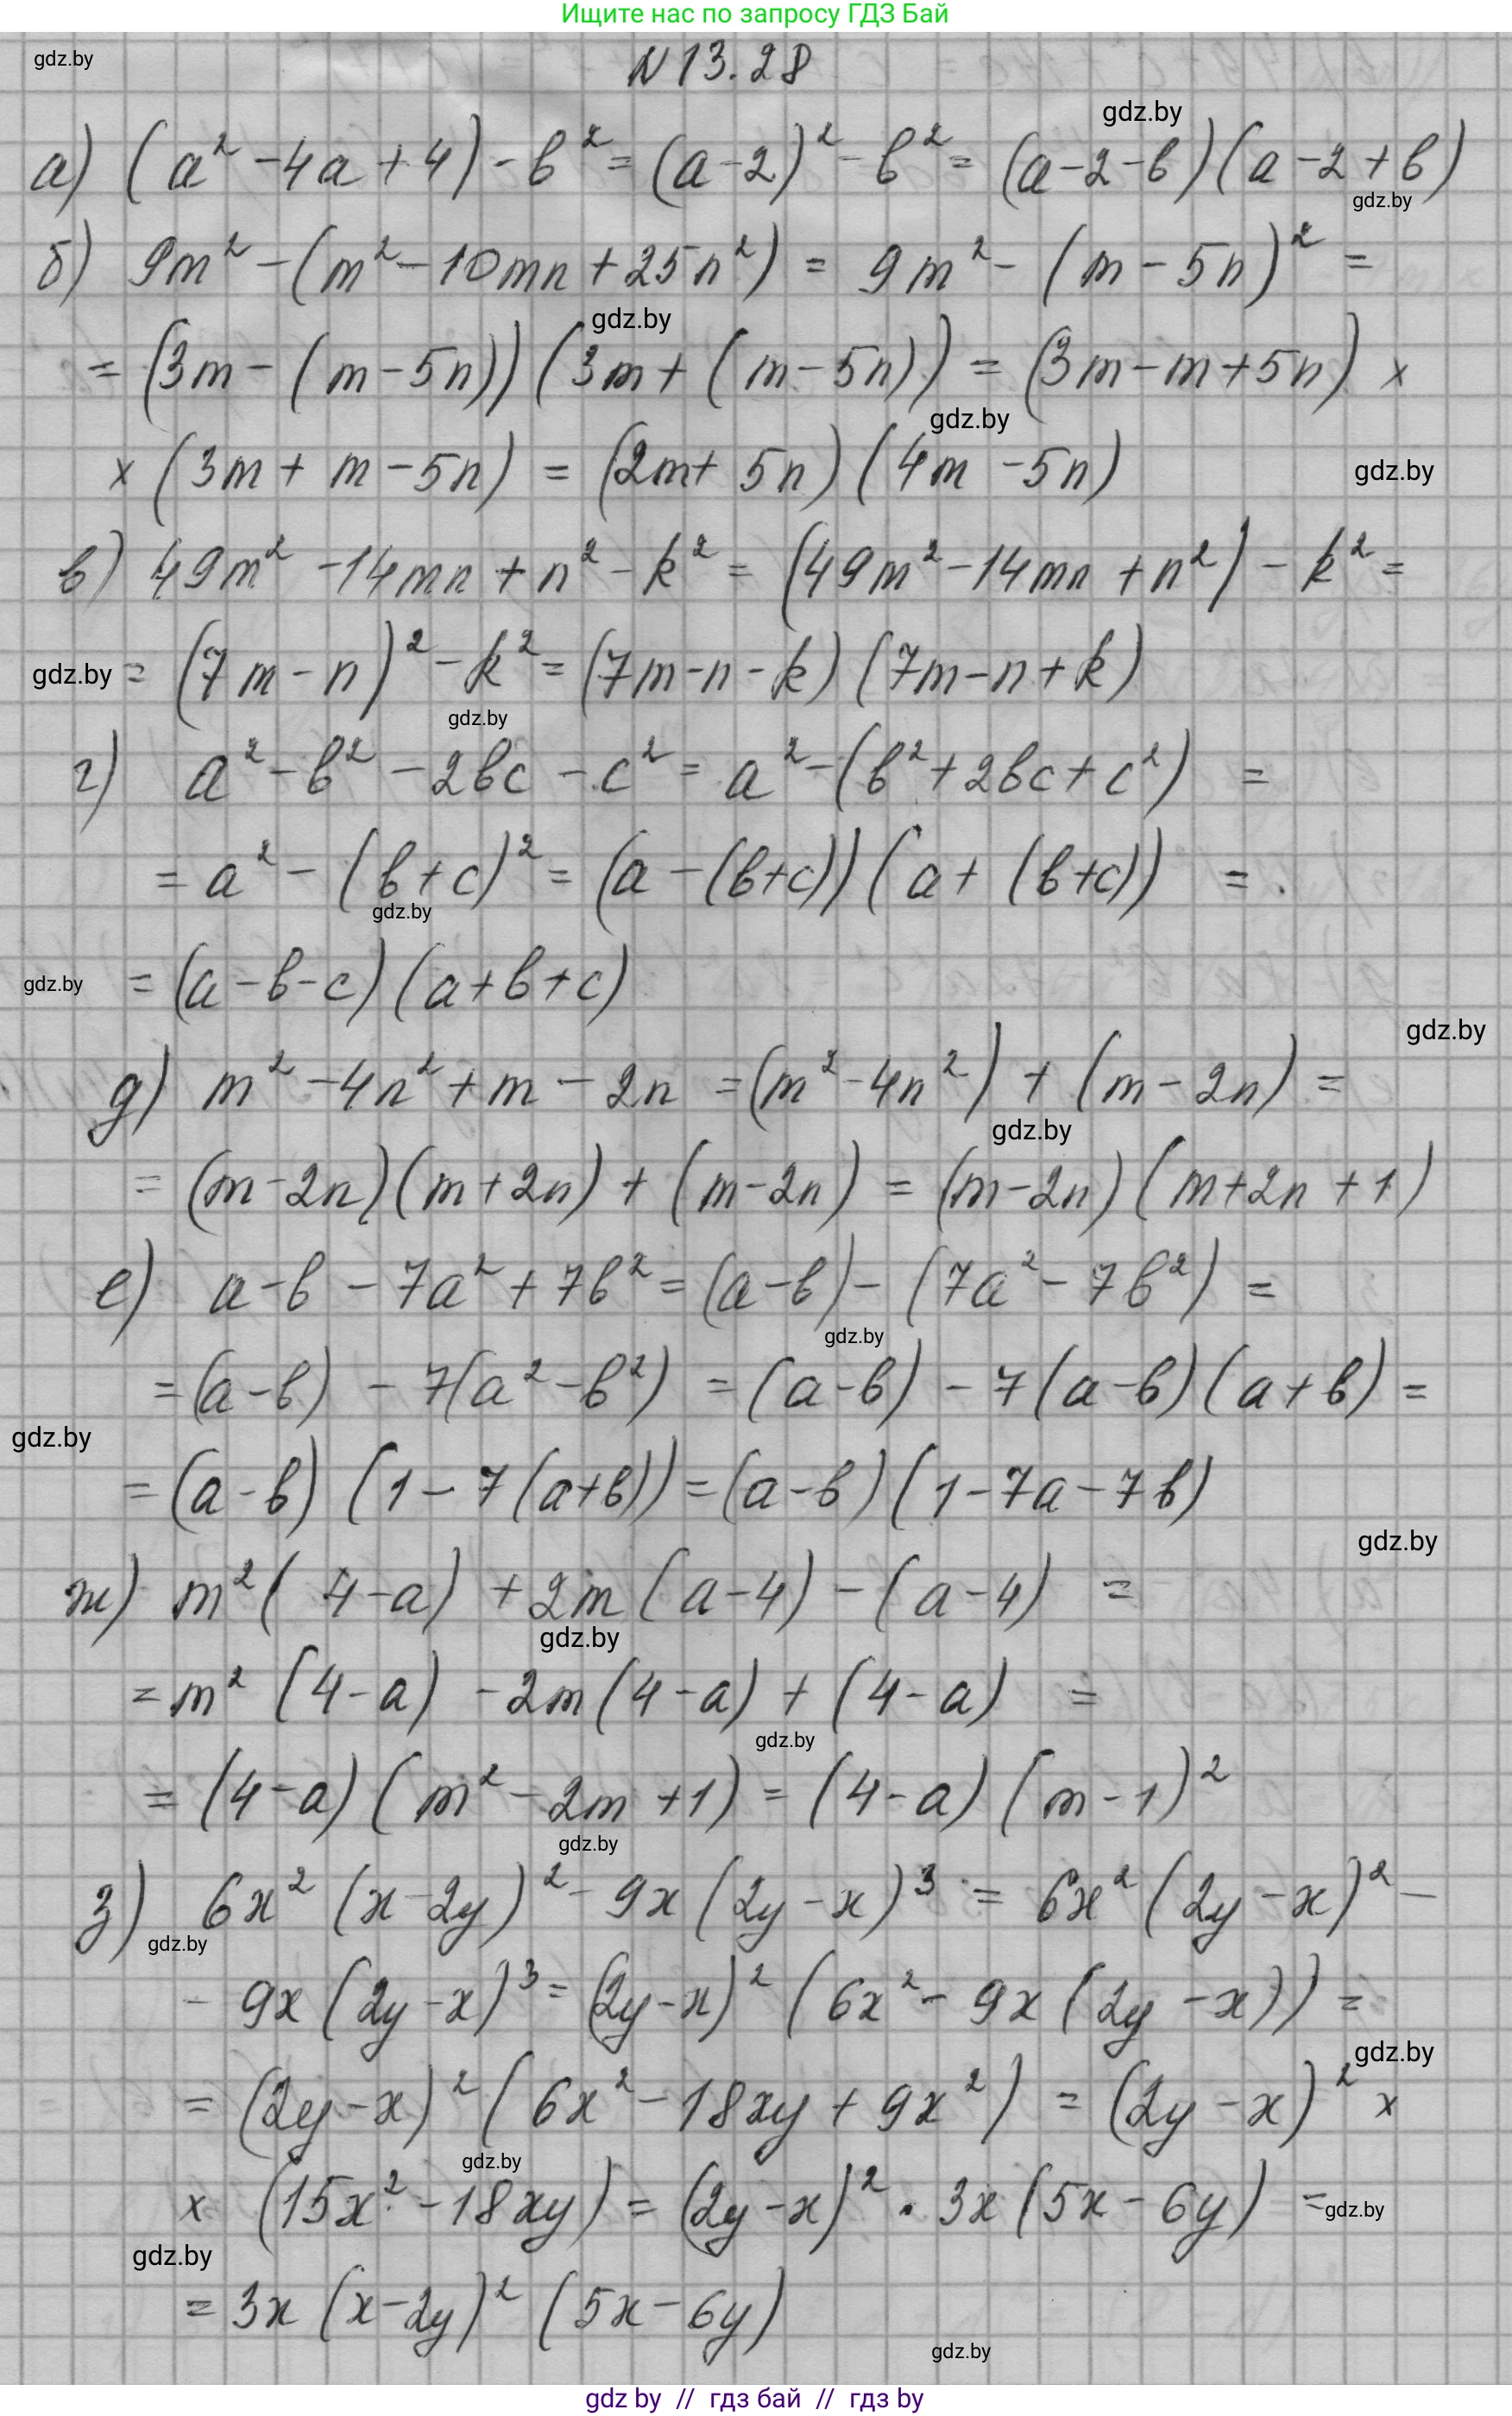 Ищите нас по запросу ГДЗ Бай
gdz.by
N 13.28
gdz.by
а) (a² - 4a + 4) - b² = (a - 2)² - b² = (a - 2 - b)(a - 2 + b)
gdz.by
б) 9m² - (m² - 10mn + 25n²) = 9m² - (m - 5n)² =
gdz.by
= (3m - (m - 5n))(3m + (m - 5n)) = (3m - m + 5n) ×
gdz.by
× (3m + m - 5n) = (2m + 5n)(4m - 5n)
gdz.by
в) 49m² - 14mn + n² - k² = (49m² - 14mn + n²) - k² =
gdz.by
= (7m - n)² - k² = (7m - n - k)(7m - n + k)
gdz.by
г) a² - b² - 2bc - c² = a² - (b² + 2bc + c²) =
= a² - (b + c)² = (a - (b + c))(a + (b + c)) =
gdz.by
gdz.by
= (a - b - c)(a + b + c)
gdz.by
д) m² - 4n² + m - 2n = (m² - 4n²) + (m - 2n) =
gdz.by
= (m - 2n)(m + 2n) + (m - 2n) = (m - 2n)(m + 2n + 1)
е) a - b - 7a² + 7b² = (a - b) - (7a² - 7b²) =
gdz.by
= (a - b) - 7(a² - b²) = (a - b) - 7(a - b)(a + b) =
gdz.by
= (a - b)(1 - 7(a + b)) = (a - b)(1 - 7a - 7b)
gdz.by
ж) m²(4 - a) + 2m(a - 4) - (a - 4) =
gdz.by
= m²(4 - a) - 2m(4 - a) + (4 - a) =
gdz.by
= (4 - a)(m² - 2m + 1) = (4 - a)(m - 1)²
gdz.by
з) 6x²(x - 2y)² - 9x(2y - x)³ = 6x²(2y - x)² -
gdz.by
- 9x(2y - x)³ = (2y - x)²(6x² - 9x(2y - x)) =
gdz.by
= (2y - x)²(6x² - 18xy + 9x²) = (2y - x)² ×
gdz.by
× (15x² - 18xy) = (2y - x)² · 3x(5x - 6y) =
gdz.by
gdz.by
= 3x(x - 2y)²(5x - 6y)
gdz.by
gdz by // гдз бай // гдз by